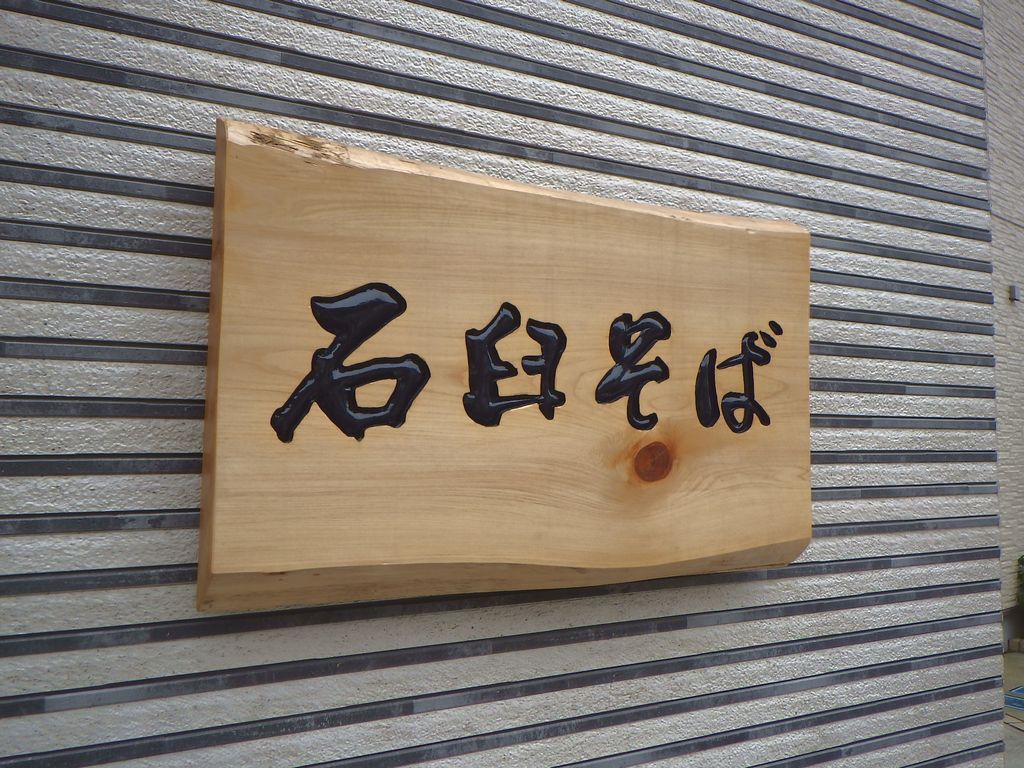 石臼そば